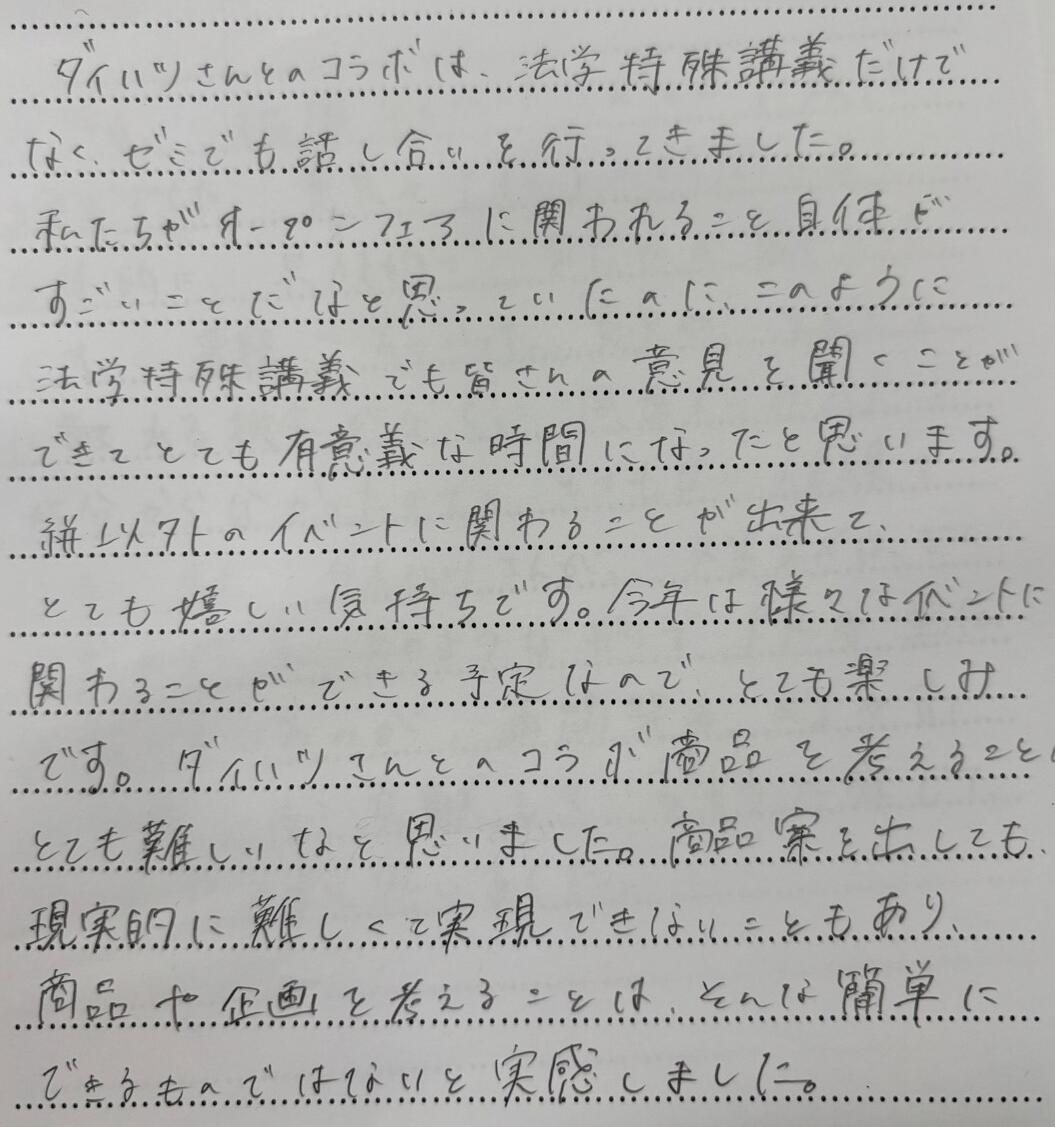 ダイハツさんとのコラボは、法学特殊講義だけで
なく、ゼミでも話し合いを行ってきました。
私たちがオープンフェアに関われること自体が
すごいことだなと思っていたのに、このように
法学特殊講義でも皆さんの意見を聞くことが
できてとても有意義な時間になったと思います。
餅以外のイベントに関わることが出来て、
とても嬉しい気持ちです。今年は様々なイベントに
関わることができる予定なので、とても楽しみ
です。ダイハツさんとのコラボ商品を考えることは
とても難しいなと思いました。商品案を出しても、
現実的に難しくて実現できないこともあり、
商品や企画を考えることは、そんな簡単に
できるものではないと実感しました。